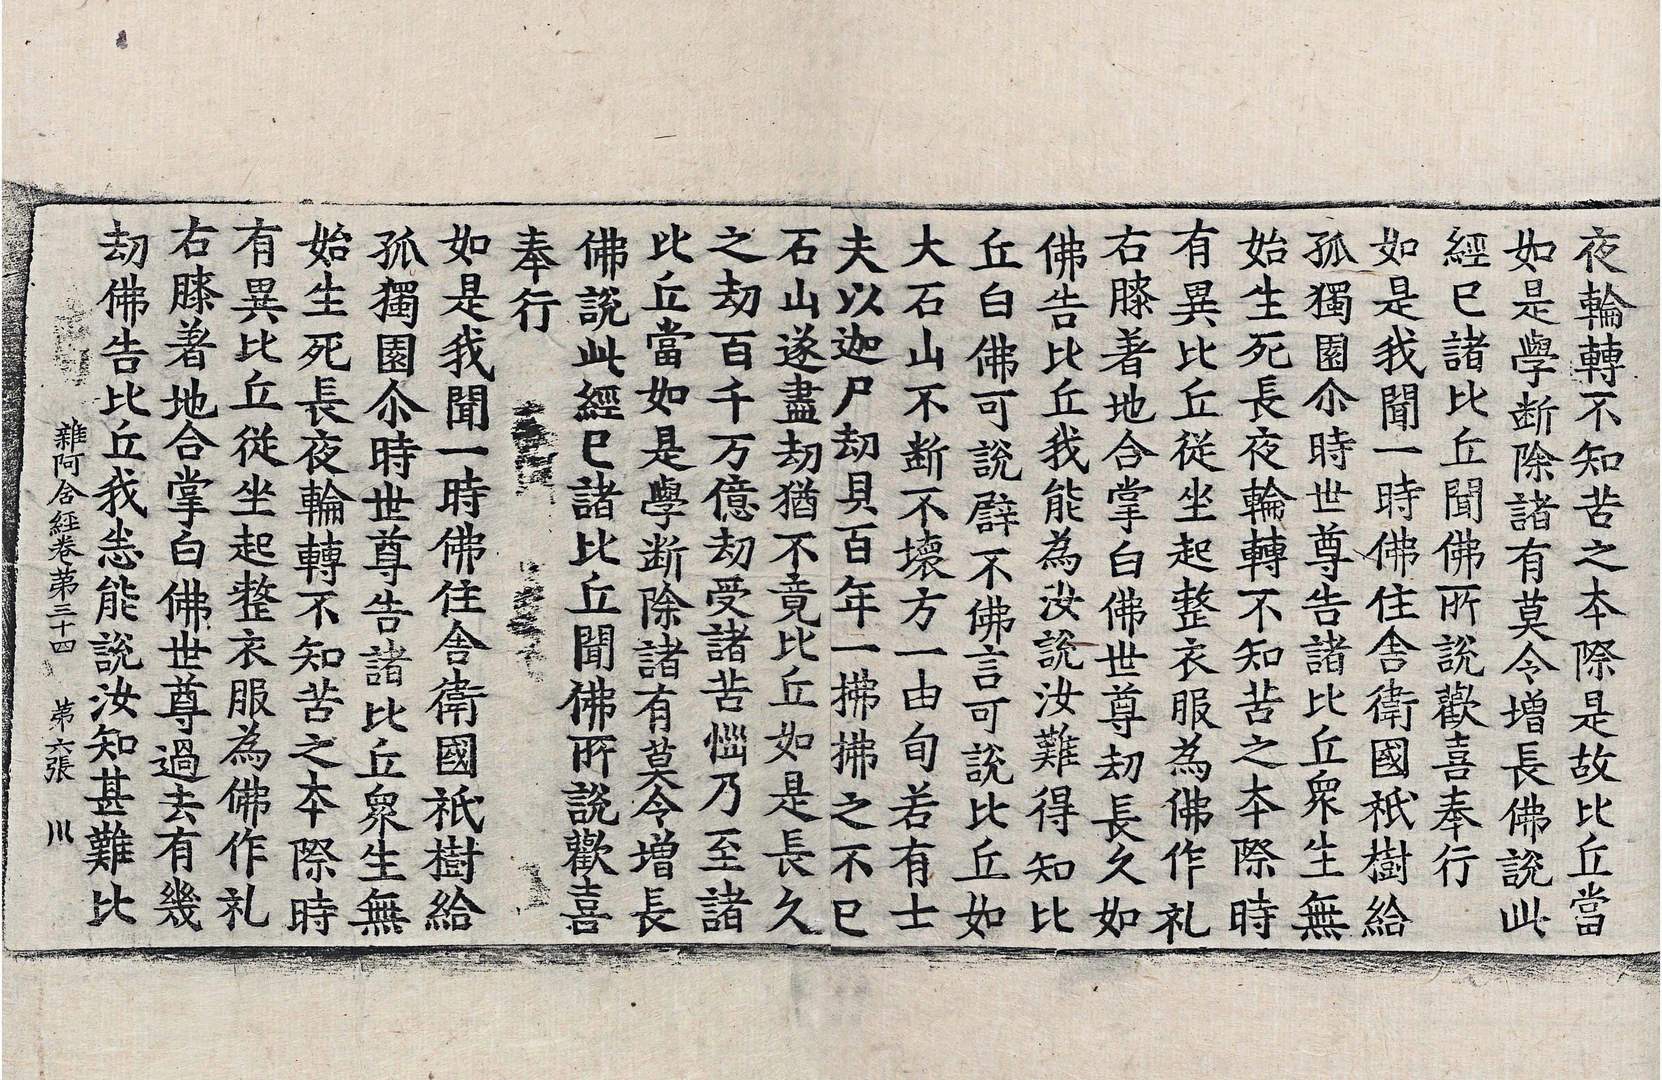 夜輪轉不知苦之本際是故比丘當
如是學断除諸有莫令增長佛說此
經已諸比丘聞佛所說歡喜奉行
如是我聞一時佛住舍衛國祇樹給
孤獨園尒時世尊告諸比丘衆生無
始生死長夜輪轉不知苦之本際時
有異比丘從坐起整衣服為佛作礼
右膝著地合掌白佛世尊劫長久如
佛告比丘我能為汝說汝難得知比
丘白佛可說譬不佛言可說比丘如
大石山不断不壞方一由旬若有士
夫以迦尸劫貝百年一拂拂之不已
石山遂盡劫猶不竟比丘如是長久
之劫百千万億劫受諸苦惱乃至諸
比丘當如是學断除諸有莫令增長
佛說此經已諸比丘聞佛所說歡喜
奉行
如是我聞一時佛住舍衛國祇樹給
孤獨園尒時世尊告諸比丘衆生無
始生死長夜輪轉不知苦之本際時
有異比丘從坐起整衣服為佛作礼
右膝著地合掌白佛世尊過去有幾
劫佛告比丘我悉能說汝知甚難比
雜阿含經卷第三十四 第六張 川